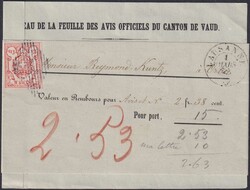 EAU DE LA FEUILLE DES AVIS OFFICIELS DU CANTON DE VAUD.
LAUSANNE
1
Monsieur Reymond
Valeur en Rembours pour N° 2 fr. 38 cent.
Pour port. 15
2.53
2.53
10
2.63